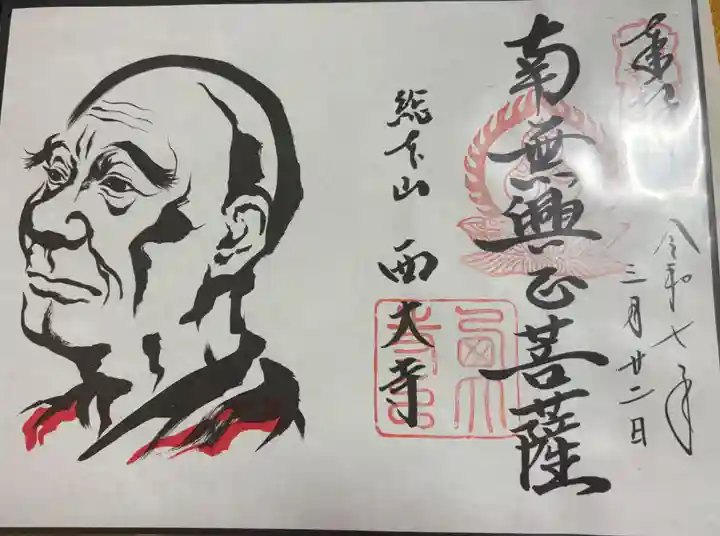 奉拝
令和七年
三月廿二日
南無興正菩薩
総本山 西大寺
西大寺印